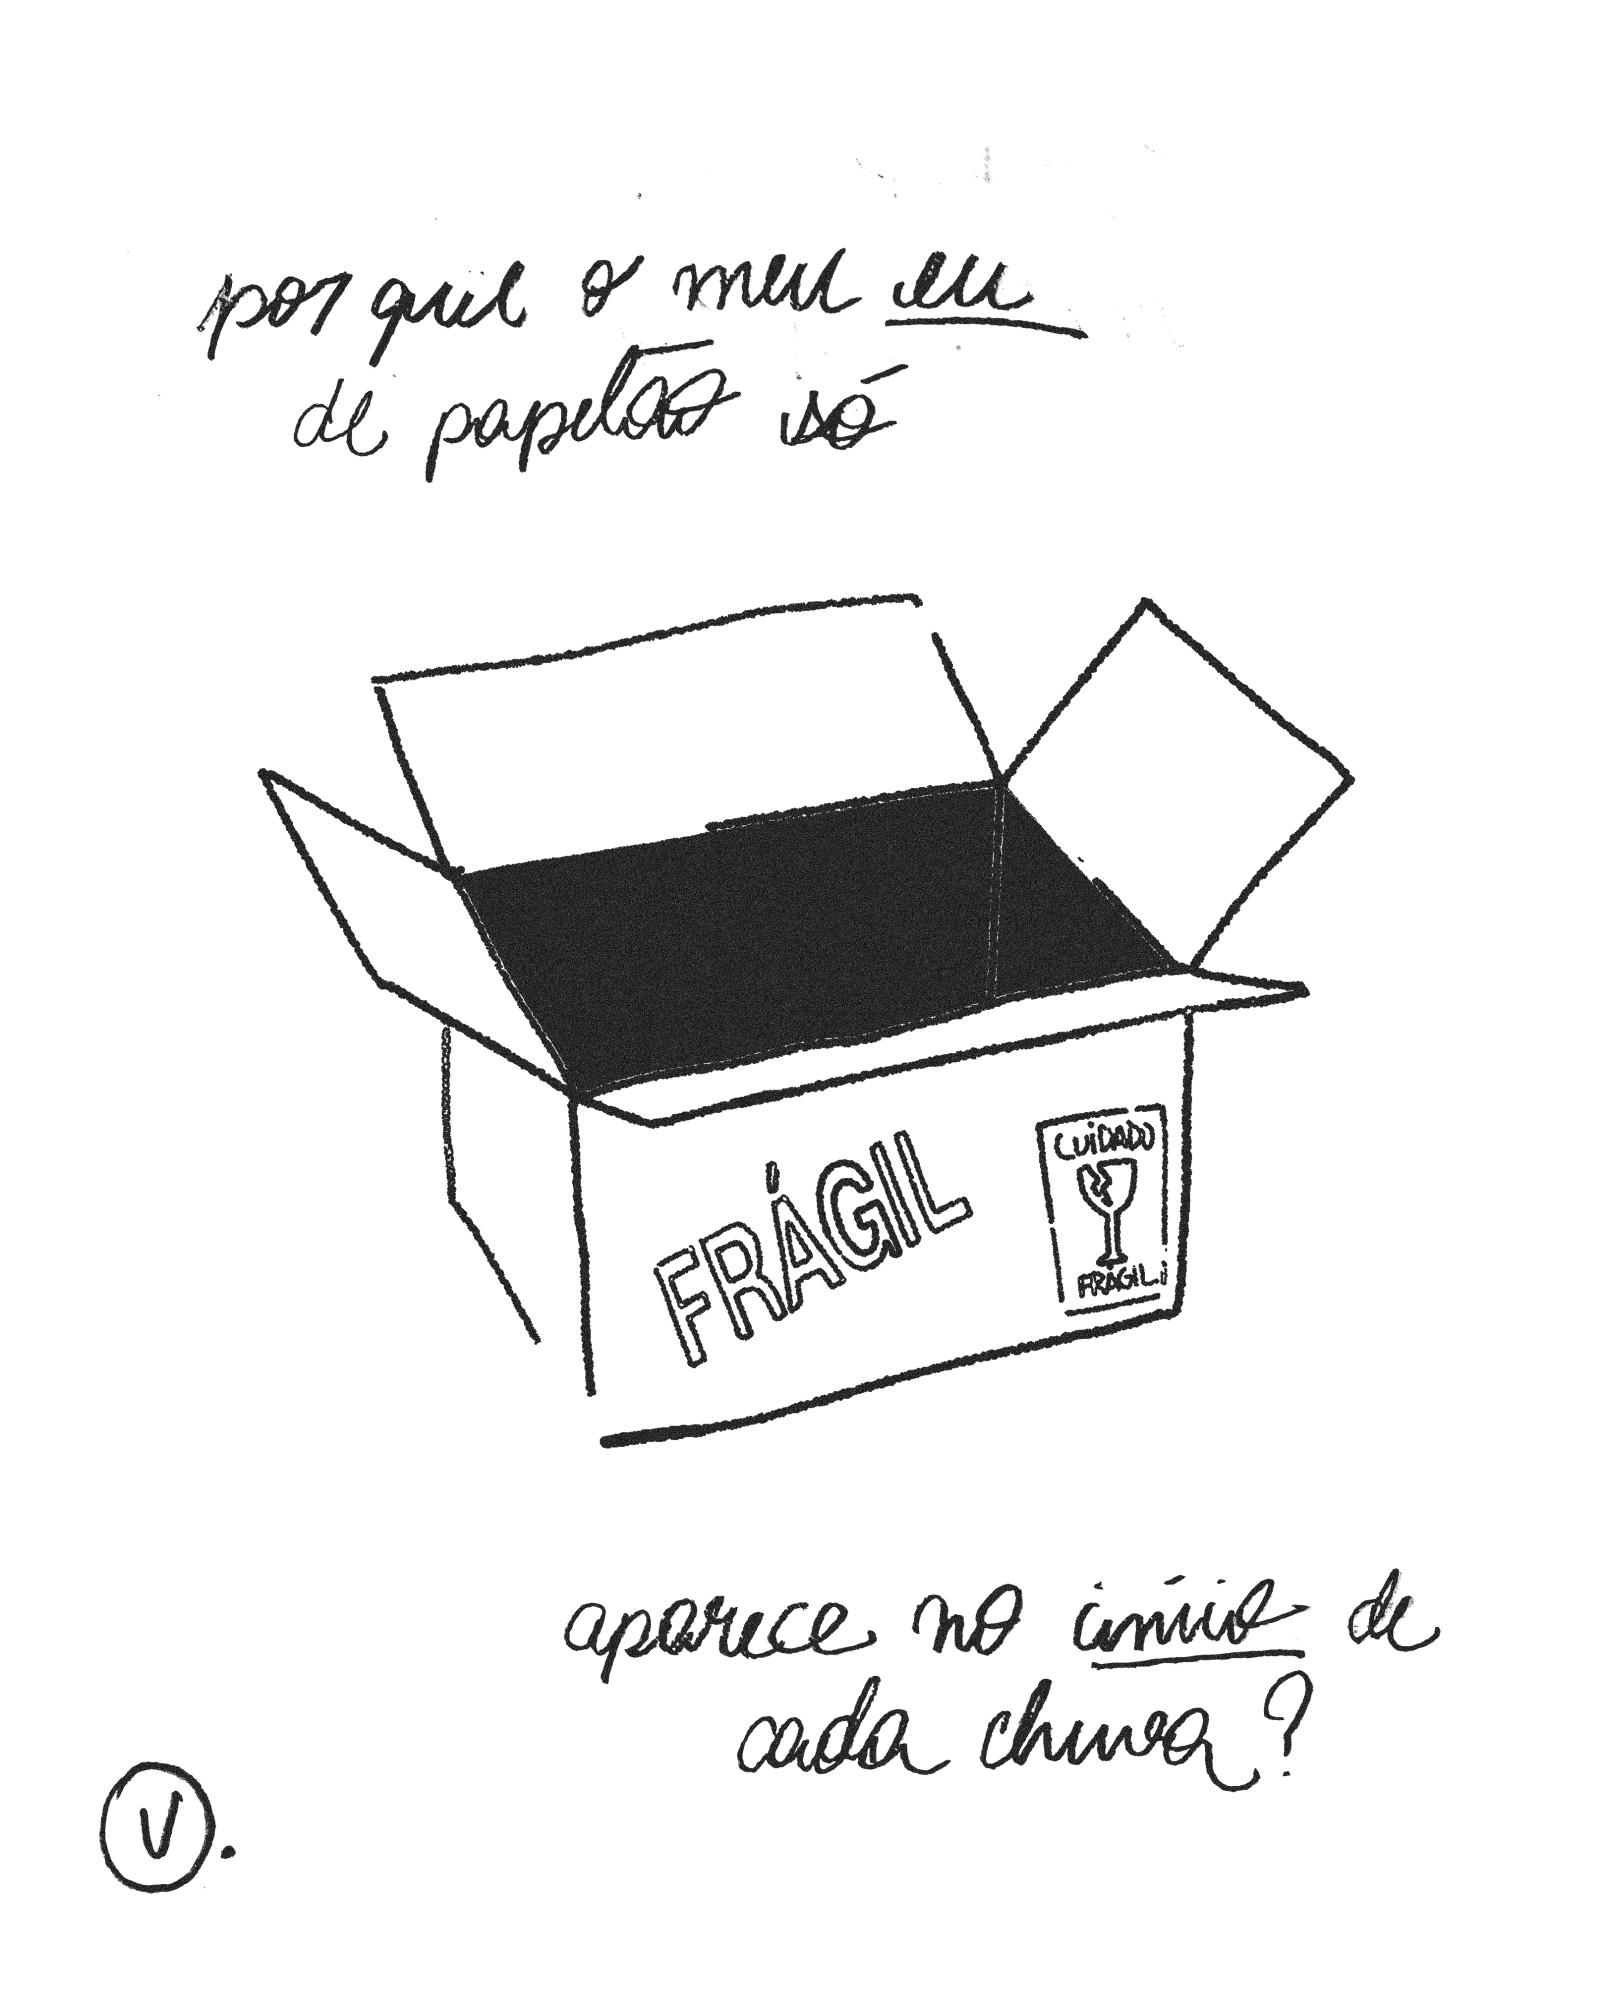 por que o meu eu
de papelão só
FRÁGIL
CUIDADO
FRÁGIL
aparece no início de
cada chuva?
V.